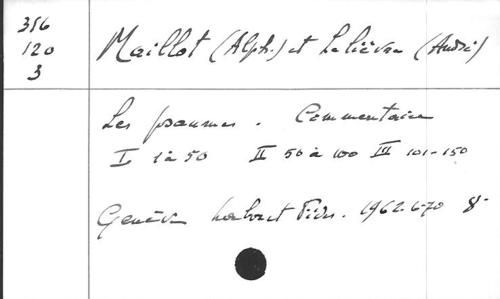 316
120
3
Maillot (Alph.) et Lelièvre (André)
Les psaumes. Commentaire
I 1 à 50 II 50 à 100 III 101-150
Genève Labor et Fides. 1962-6-70 8°